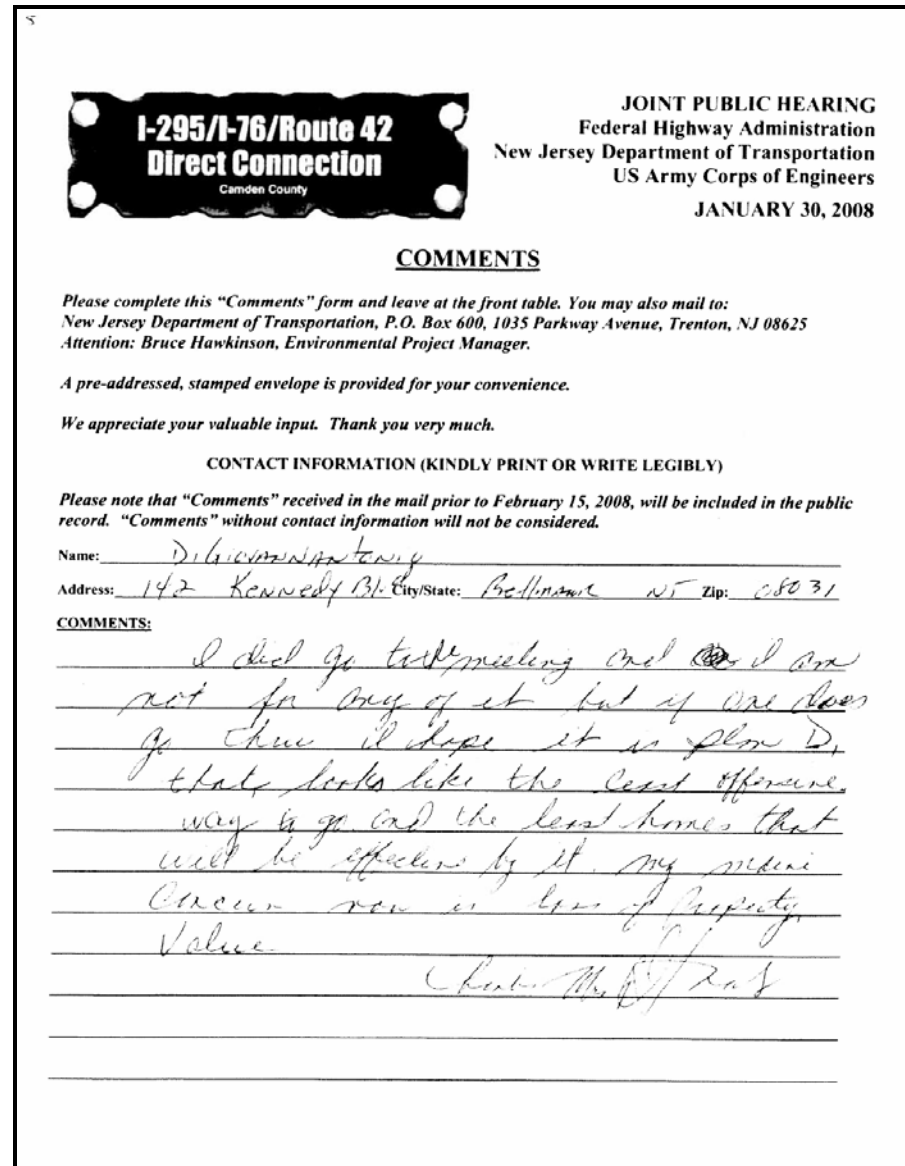 I-295/I-76/Route 42
Direct Connection
Camden County
JOINT PUBLIC HEARING
Federal Highway Administration
New Jersey Department of Transportation
US Army Corps of Engineers
JANUARY 30, 2008
COMMENTS
Please complete this “Comments” form and leave at the front table. You may also mail to:
New Jersey Department of Transportation, P.O. Box 600, 1035 Parkway Avenue, Trenton, NJ 08625
Attention: Bruce Hawkinson, Environmental Project Manager.
A pre-addressed, stamped envelope is provided for your convenience.
We appreciate your valuable input. Thank you very much.
CONTACT INFORMATION (KINDLY PRINT OR WRITE LEGIBLY)
Please note that “Comments” received in the mail prior to February 15, 2008, will be included in the public
record. “Comments” without contact information will not be considered.
Name:
Address: 142 Kennedy Blvd City/State: Bellmawr NJ Zip: 08031
COMMENTS:
I did go to the meeting and I am
not for any of it but if one does
go thru I hope it is plan D,
that looks like the least offensive
way to go and the least homes that
will be effective by it. my main
Concern now is loss of Property
Value